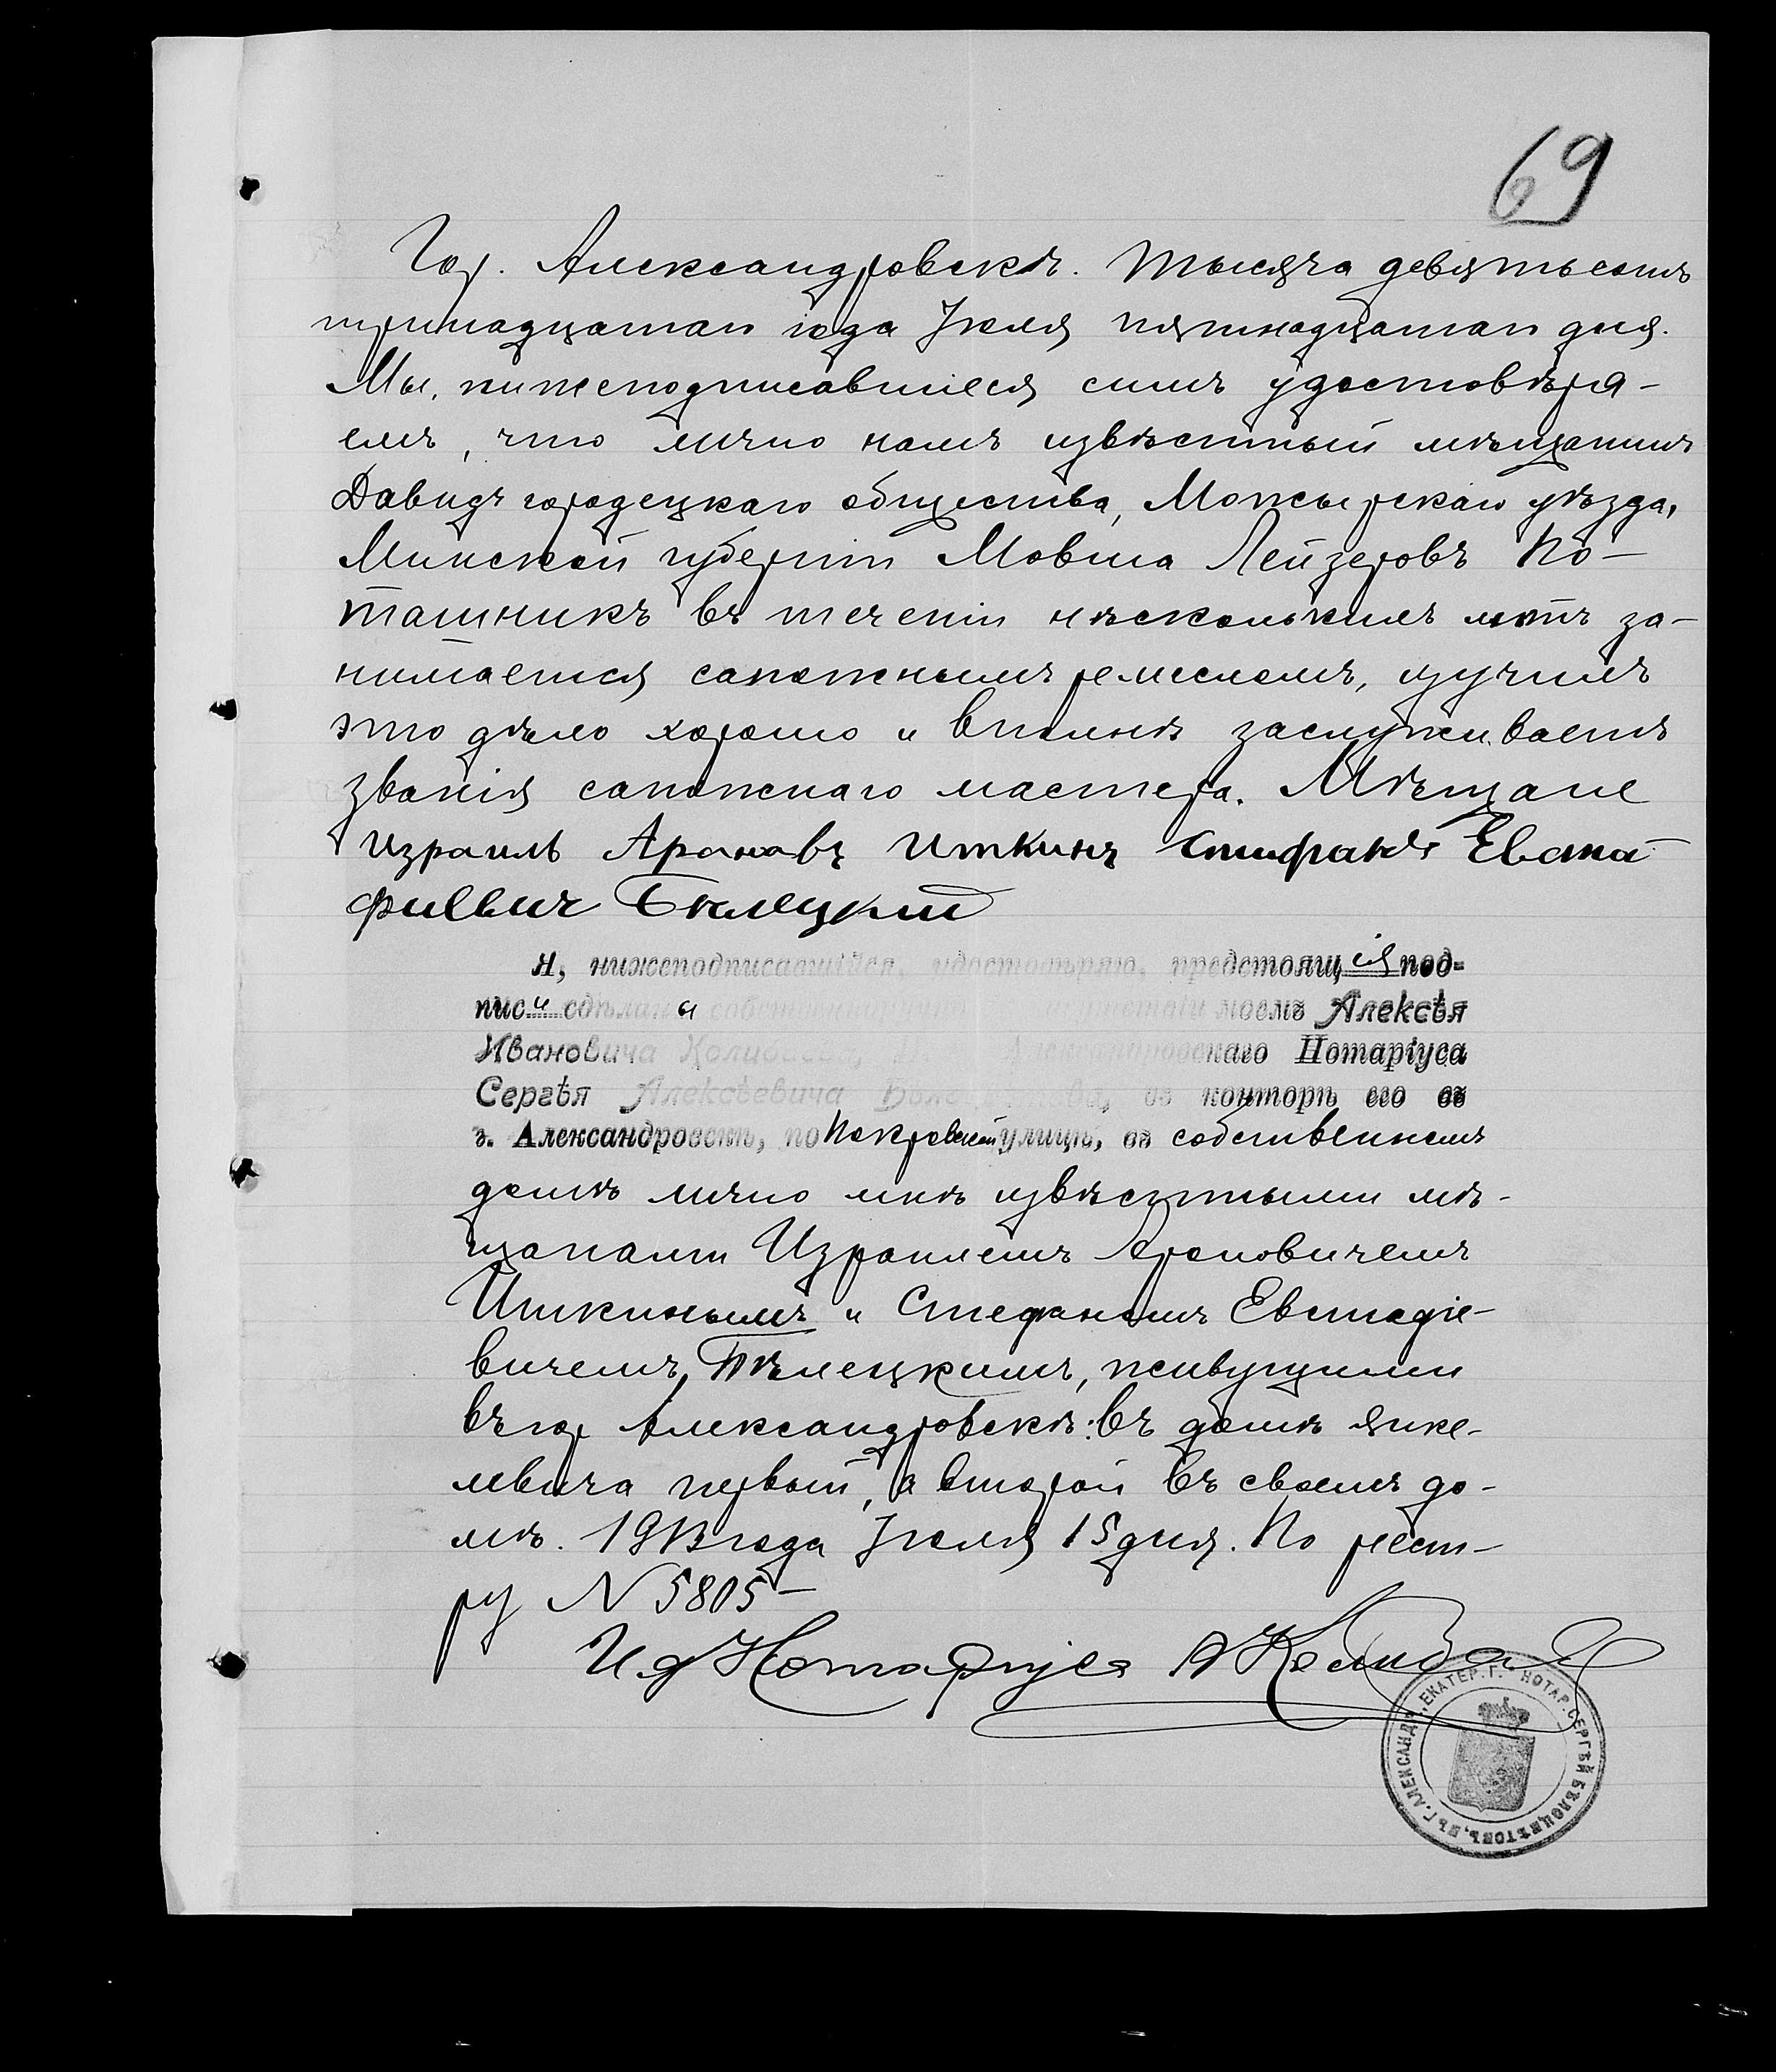 69
Гор. Александровскъ. Тысяча девятьсотъ
тринадцатаго года Іюля пятнадцатаго дня.
Мы, нижеподписавшіеся симъ удостовѣря-
емъ, что лично намъ извѣстный мѣщанинъ
Давидъ городецкаго общества, Мозырскаго уѣзда,
Минской губерніи Мовша Лейзеровъ По-
ташникъ въ теченіи нѣсколькихъ лѣтъ за-
нимается сапожнымъ ремесломъ, изучилъ
это дѣло хорошо и вполнѣ заслуживаетъ
званія сапожнаго мастера. Мѣщане
Израиль Ароновъ Иткинъ Стифанъ Евста
фиевич Билецкий
Я, нижеподписавшійся, удостовѣряю, предстоящія под-
писи сдѣланы собственноручно моемъ Алексѣя
Ивановича Колибаева, Александровскаго Нотаріуса
Сергѣя Алексѣевича въ конторѣ его въ
г. Александровскѣ, по Покровской улицѣ, въ собственномъ
домѣ лично мнѣ извѣстными мѣ-
щанами Израилемъ Ароновичемъ
Иткинымъ и Стефаномъ Евстафіе-
вичемъ Бѣлецкимъ, живущими
въ гор Александровскѣ: въ домѣ Янке-
левича первый, а второй въ своемъ до-
мѣ. 1913 года Іюля 15 дня. По реест-
ру N 5805-
И д Нотаріуса А Колибаев
НОТАР. СЕРГѢЙ БѢЛОЦВѢТОВЪ, ВЪ Г. АЛЕКСАНДР., ЕКАТЕР. Г.